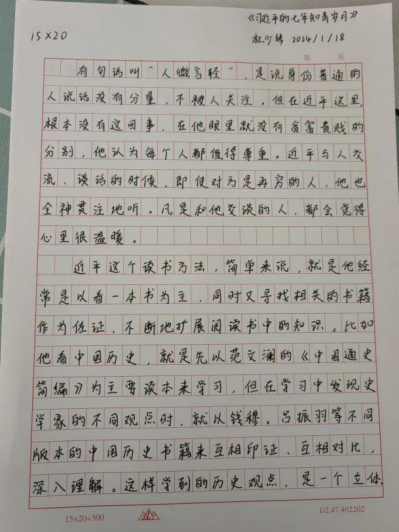 《习近平的七年知青岁月》
15×20
杜少 2024/1/18
有句话叫“人微言轻”,是说身份普通的
人说话没有分量,不被人关注。但在近平这里,
根本没有这回事,在他眼里就没有贪富贵贱的
分别,他认为每个人都值得尊重。近平与人交
流、谈话的时候,即使对方是再穷的人,他也
全神贯注地听。凡是和他交谈的人,都会觉得
心里很温暖。
近平这个读书方法,简单来说,就是他经
常是以看一本书为主,同时又寻找相关的书籍
作为佐证,不断地扩展阅读书中的知识。比如
他看中国历史,就是先以范文澜的《中国通史
简编》为主要读本来学习,但在学习中发现史
学家的不同观点时,就以钱穆、吕振羽等不同
版本的中国历史书籍来互相印证,互相对比,
深入理解。这样学到的历史观点,是一个立体
15×20=300
D2.47.402202